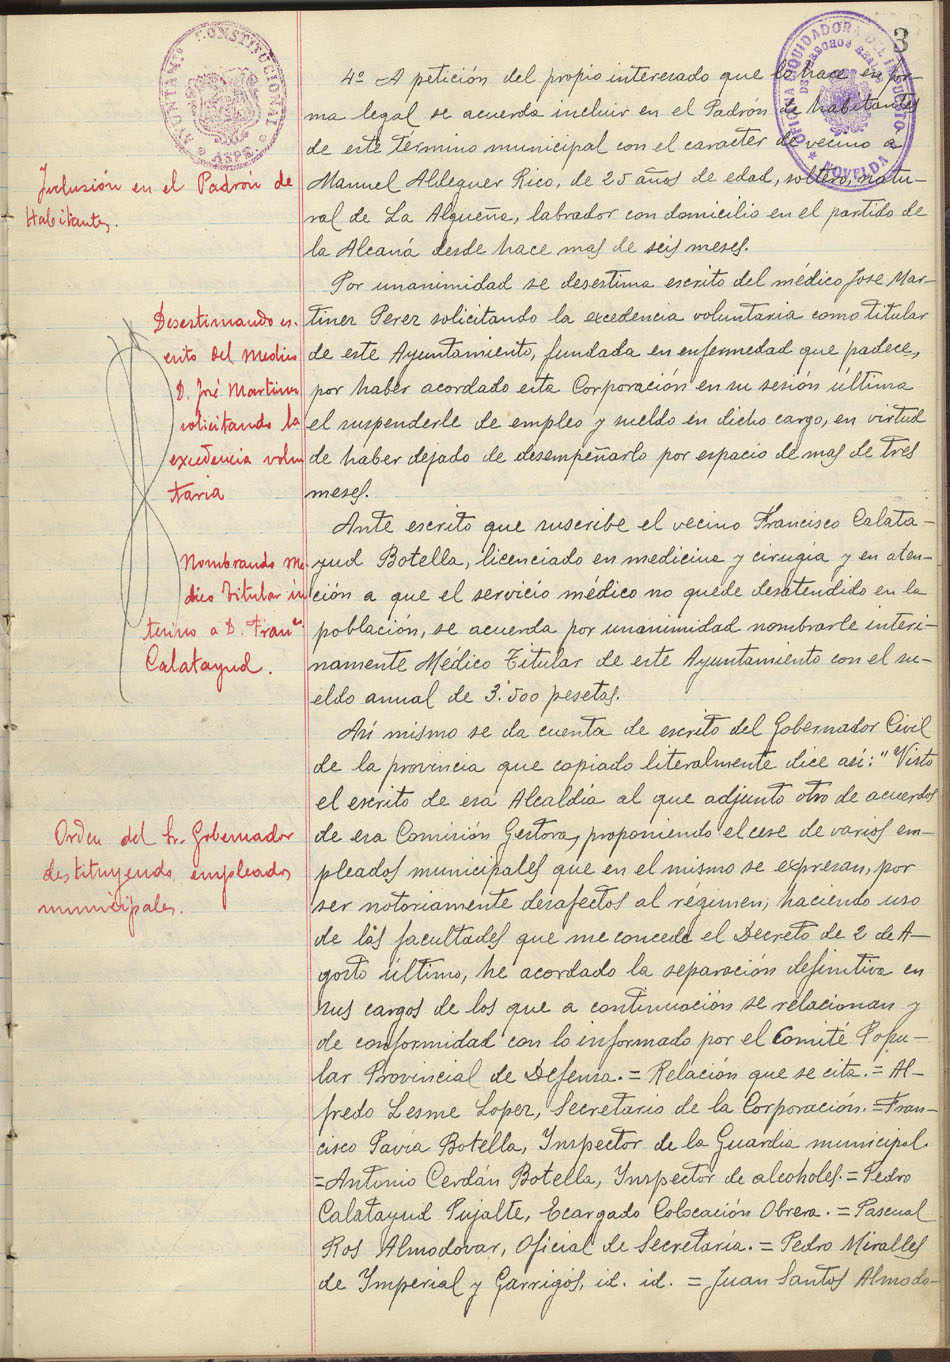 3
AYUNTAM.TO CONSTITUCIONAL
* ASPE *
OFICINA LIQUIDADORA DEL IMPUESTO
DE DERECHOS REALES
* NOVELDA
4º A petición del propio interesado que lo hace en for-
ma legal se acuerda incluir en el Padrón de habitantes
de este término municipal con el caracter de vecino a
Manuel Aldeguer Rico, de 25 años de edad, soltero, natu-
ral de La Algueña, labrador con domicilio en el partido de
la Alcaná desde hace mas de seis meses.
Inclusión en el Padrón de
Habitantes.
Por unanimidad se desestima escrito del médico Jose Mar-
tinez Perez solicitando la excedencia voluntaria como titular
de este Ayuntamiento, fundada en enfermedad que padece,
por haber acordado esta Corporación en su sesión última
el suspenderle de empleo y sueldo en dicho cargo, en virtud
de haber dejado de desempeñarlo por espacio de mas de tres
meses.
Desestimando es-
crito del Medico
D. José Martinez
solicitando la
excedencia volun
taria
Ante escrito que suscribe el vecino Francisco Calata-
yud Botella, licenciado en medicine y cirugia y en aten-
ción a que el servicio médico no quede desatendido en la
población, se acuerda por unanimidad nombrarle interi-
namente Médico Titular de este Ayuntamiento con el su-
eldo anual de 3.500 pesetas.
Nombrando Me
dico Titular in
terino a D. Franco
Calatayud.
Asi mismo se da cuenta de escrito del Gobernador Civil
de la provincia que copiado literalmente dice asi: "Visto
el escrito de esa Alcaldia al que adjunto otro de acuerdos
de esa Comisión Gestora, proponiendo el cese de varios em-
pleados municipales que en el mismo se expresan, por
ser notoriamente desafectos al régimen, haciendo uso
de las facultades que me concede el Decreto de 2 de A-
gosto último, he acordado la separación definitiva en
sus cargos de los que a continuación se relacionan y
de conformidad con lo informado por el Comité Popu-
lar Provincial de Defensa. = Relación que se cita. = Al-
fredo Lesme Lopez, Secretario de la Corporación. = Fran-
cisco Pavia Botella, Inspector de la Guardia municipal
= Antonio Cerdán Botella, Inspector de alcoholes. = Pedro
Calatayud Pujalte, Ecargado Colocación Obrera. = Pascual
Ros Almodovar, Oficial de Secretaria. = Pedro Miralles
de Imperial y Garrigós, id. id. = Juan Santos Almodo-
Orden del Sr. Gobernador
destituyendo empleados
municipales.